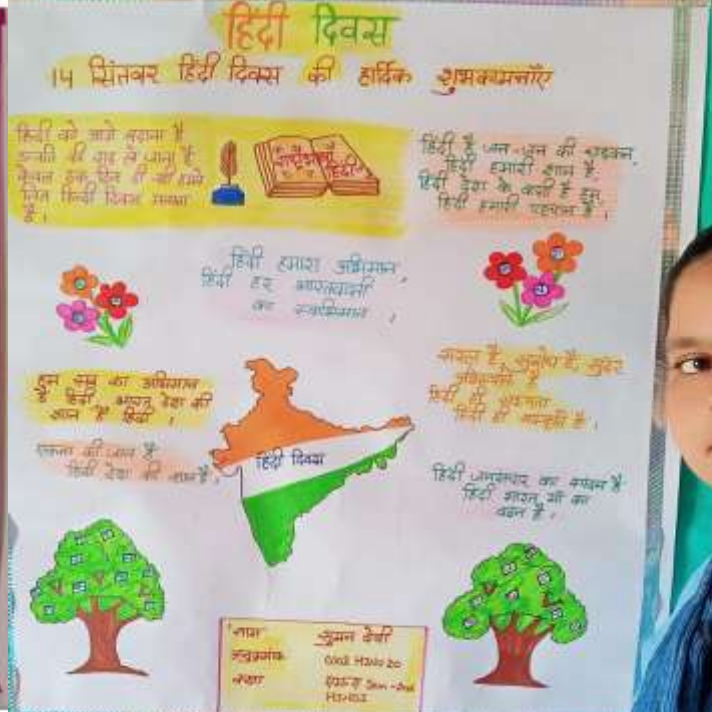 हिंदी दिवस
14 सितंबर हिंदी दिवस की हार्दिक शुभकामनाएँ
हिंदी को आगे बढ़ाना है
उन्नति की राह ले जाना है
केवल इक दिन ही नहीं हमने
नित हिन्दी दिवस मनाना
है।
राष्ट्रभाषा
हिंदी
हिंदी है जन-जन की धड़कन,
हिंदी हमारी शान है,
हिंदी देश के वासी है हम,
हिंदी हमारी पहचान है।
हिंदी हमारा अभिमान,
हिंदी हर भारतवासी
का स्वाभिमान,
हम सब का अभिमान
है हिंदी, भारत देश की
शान है हिंदी।
सरल है, सुबोध है, सुंदर
अभिव्यक्ति है
हिंदी ही सभ्यता
हिंदी ही संस्कृति है।
एकता की जान है
हिंदी देश की शान है,
हिंदी दिवस
हिंदी का साधन है
हिंदी भारत माँ का
वंदन है।
नाम सुमन देवी
अनुक्रमांक
कक्षा